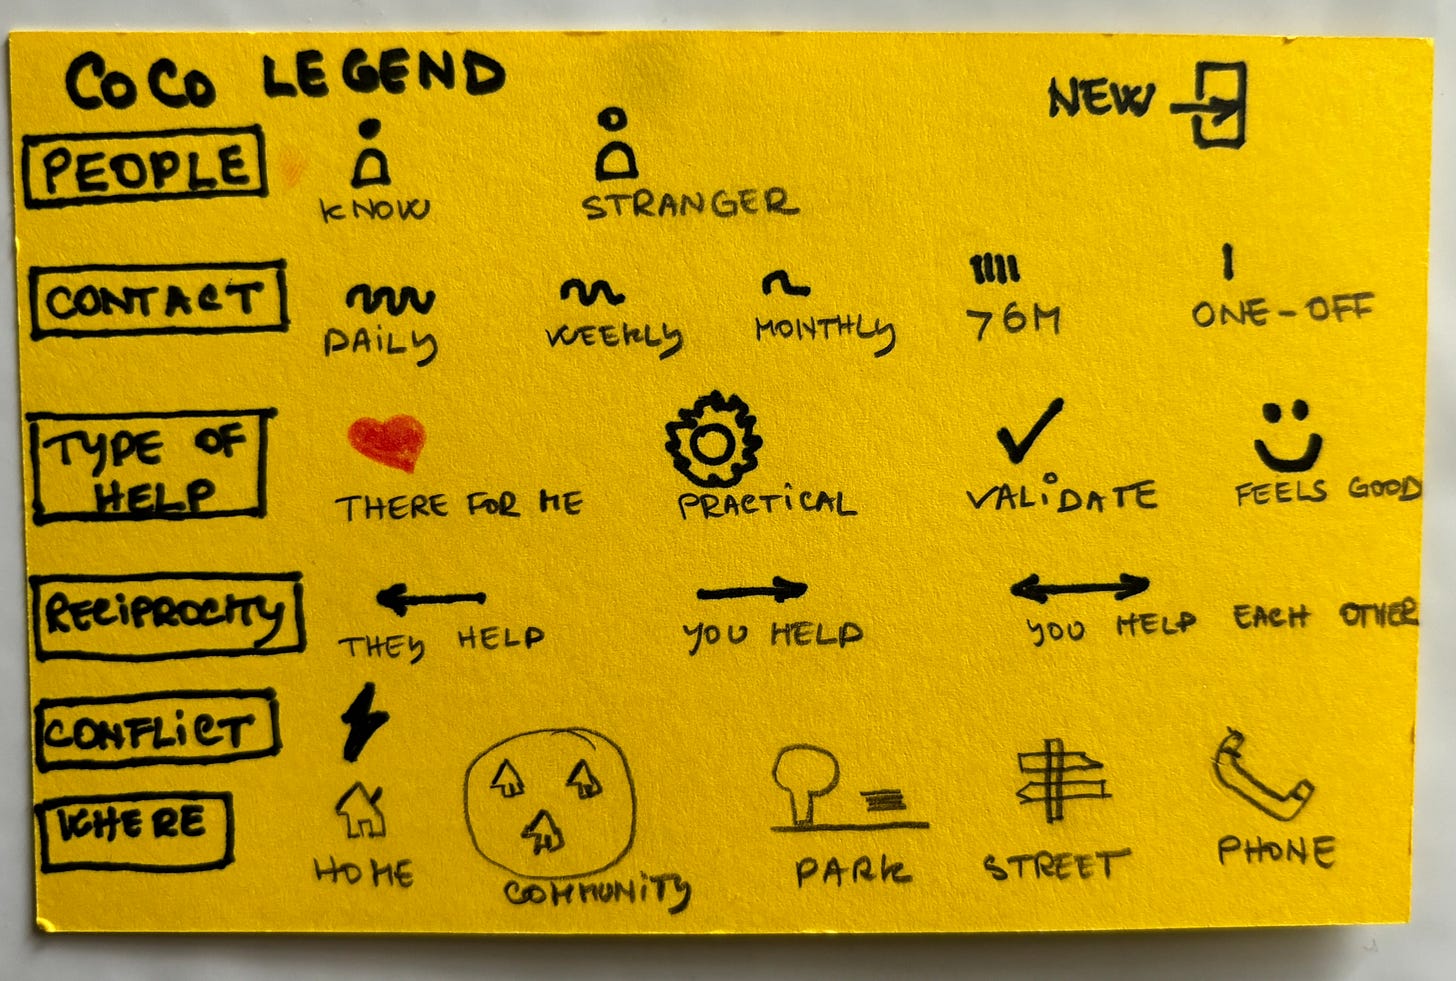 CoCo LEGEND
NEW
PEOPLE
KNOW
STRANGER
CONTACT
DAiLy
WEEKLy
MONTHLy
76M
ONE-OFF
TYPE OF
HELP
THERE FOR ME
PRACTiCAL
VALiDATE
FEELS GOOD
RECiPROCiTy
THEy HELP
yOU HELP
yOU HELP EACH OTHER
CONFLiCT
WHERE
HOME
COMMUNiTy
PARK
STREET
PHONE